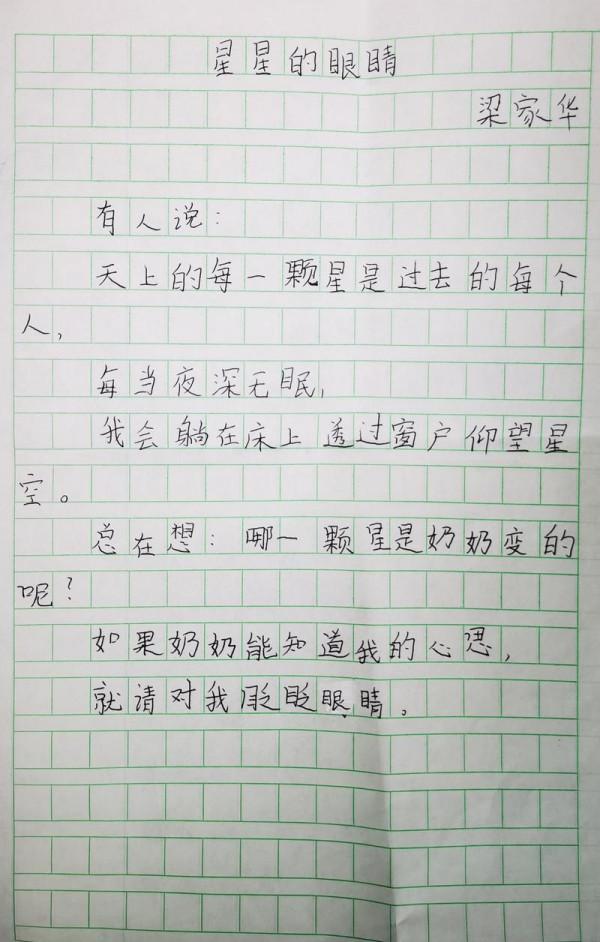 星星的眼睛
梁家华
有人说：
天上的每一颗星是过去的每个
人，
每当夜深无眠，
我会躺在床上透过窗户仰望星
空。
总在想：哪一颗星是奶奶变的
呢？
如果奶奶能知道我的心思，
就请对我眨眨眼睛。